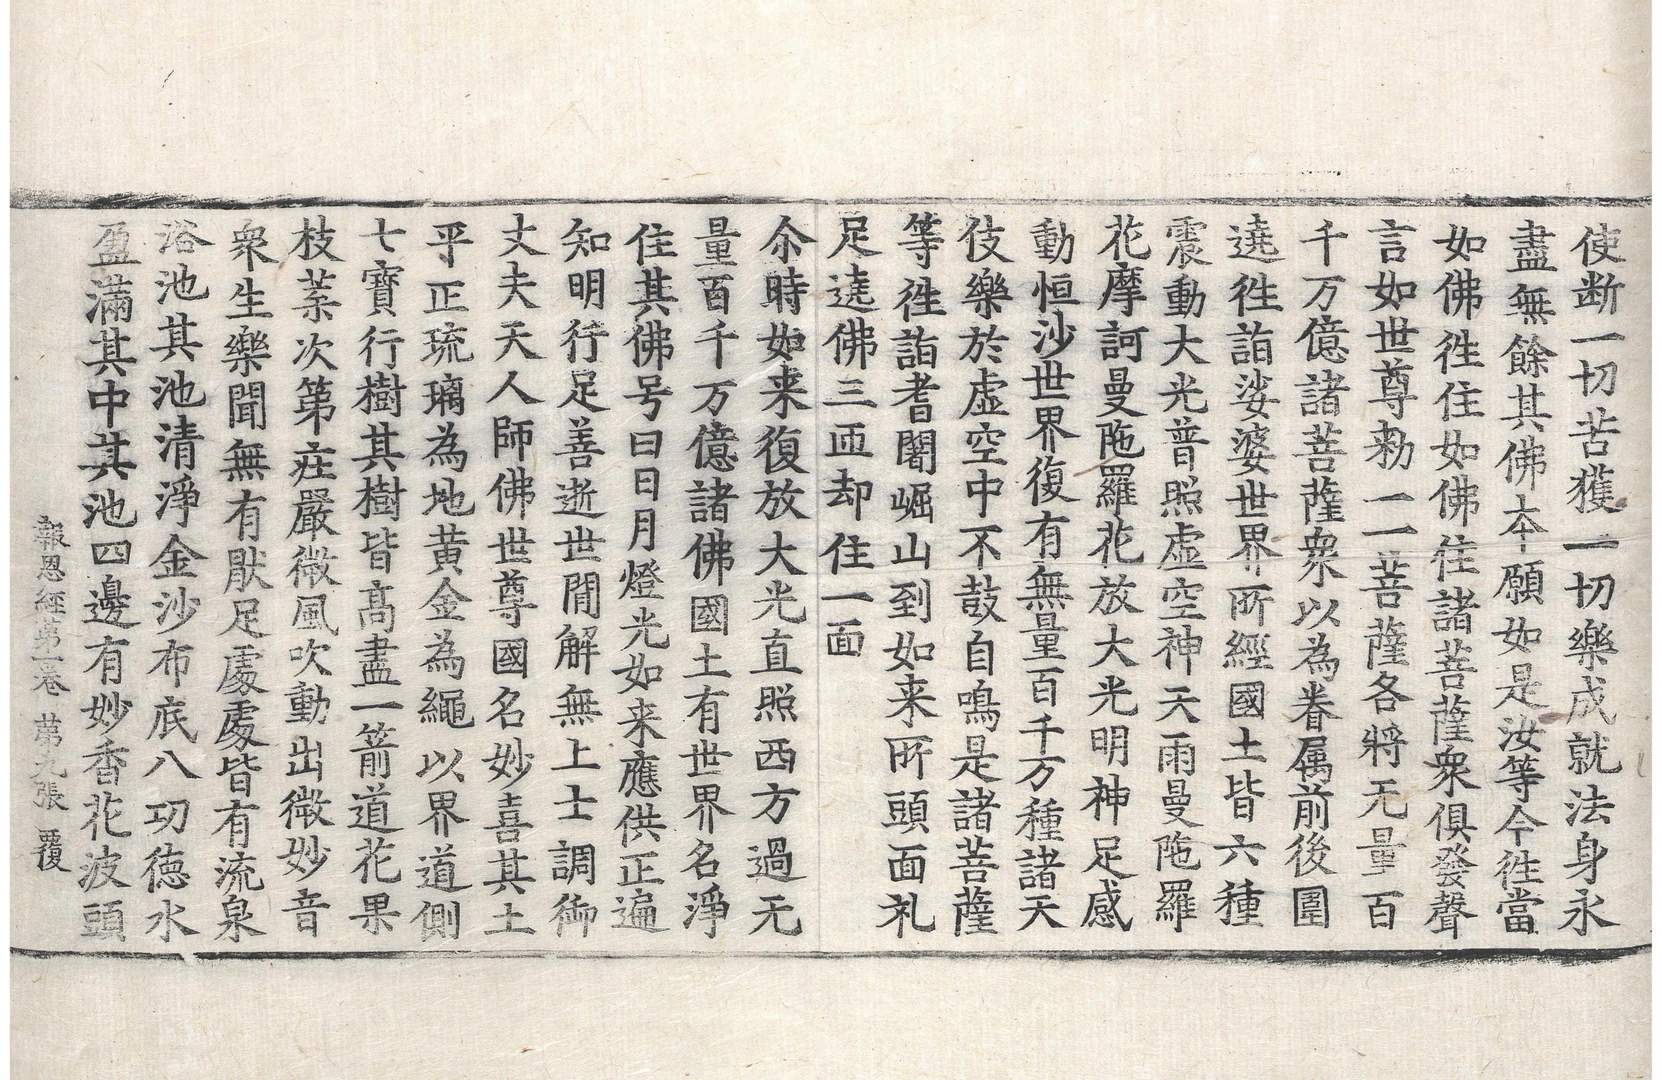 使断一切苦獲一切樂成就法身永
盡無餘其佛夲願如是汝等今徃當
如佛徃住如佛住諸菩薩衆俱發聲
言如世尊勑一一菩薩各將无量百
千万億諸菩薩衆以為眷属前後圍
遶徃詣娑婆世界所經國土皆六種
震動大光普照虛空神天雨曼陁羅
花摩訶曼陁羅花放大光明神足感
動恒沙世界復有無量百千万種諸天
伎樂於虛空中不鼓自鳴是諸菩薩
等徃詣耆闍崛山到如来所頭面礼
足遶佛三匝却住一面
尒時如来復放大光直照西方過无
量百千万億諸佛國土有世界名淨
住其佛号曰日月燈光如来應供正遍
知明行足善逝世間解無上士調御
丈夫天人師佛世尊國名妙喜其土
平正琉璃為地黄金為繩以界道側
七寶行樹其樹皆髙盡一箭道花果
枝葉次第庄嚴微風吹動出微妙音
衆生樂聞無有猒足處處皆有流泉
浴池其池清淨金沙布底八功德水
盈滿其中其池四邊有妙香花波頭
報恩經第一卷 苐九張 覆